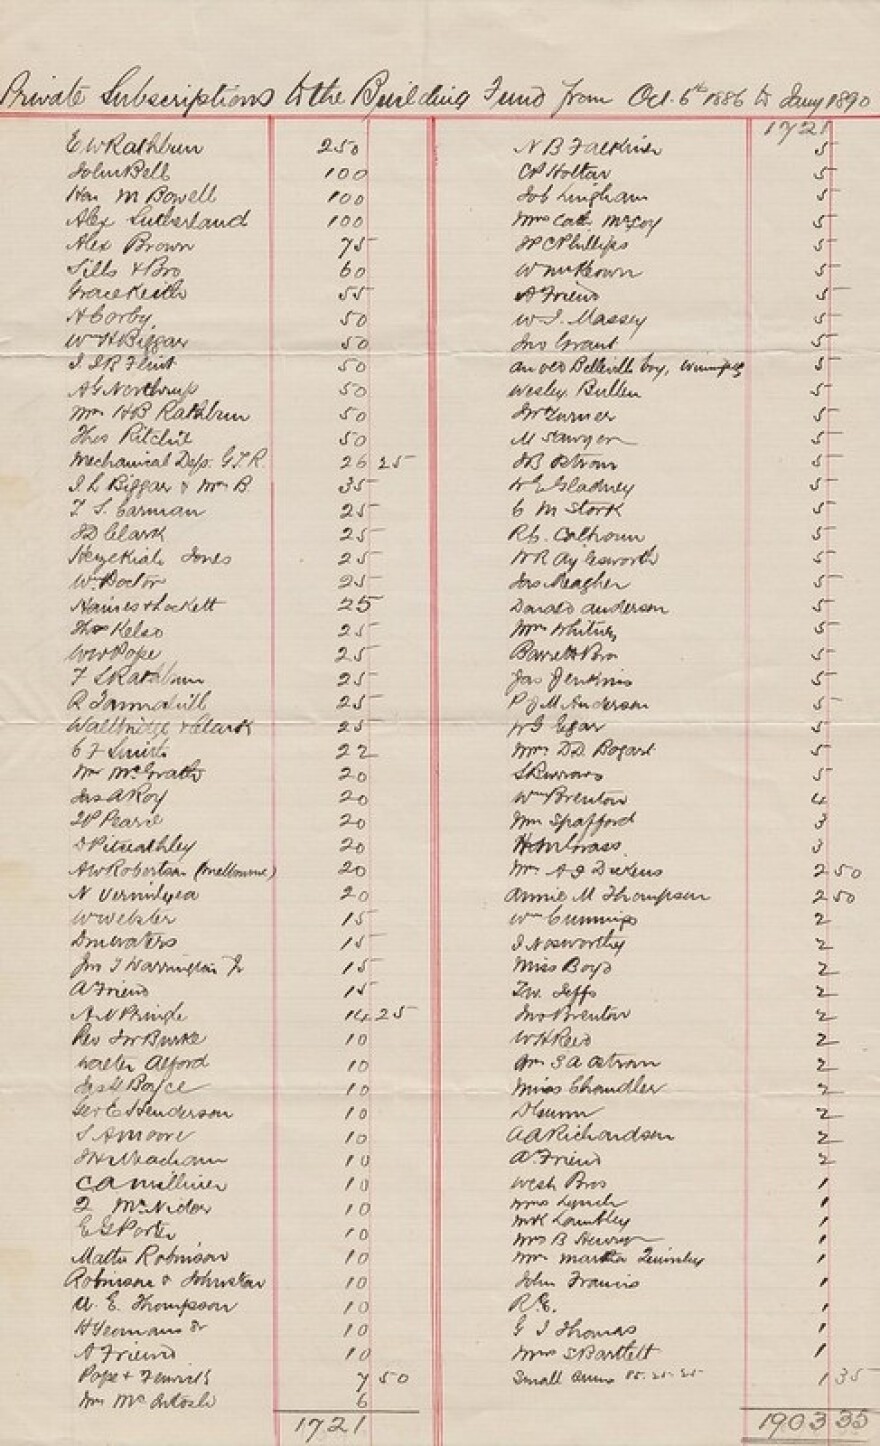 Private Subscriptions to the Building Fund from Oct. 6th 1886 to Jany 1890
E W Rathbun 250
John Bell 100
Hon M Bowell 100
Alex Sutherland 100
Alex Brown 75
Sills & Bro 60
Grace Keith 55
H Corby 50
Wm H Biggar 50
J J B Flint 50
A G Northrup 50
Mrs H B Rathbun 50
Thos Ritchie 50
Mechanical Dep. G.T.R. 26 25
J L Biggar & Mrs B. 35
T. S. Carman 25
J D Clark 25
Hezekiah Jones 25
W. Doctor 25
Haines & Lockett 25
Thos Kelso 25
W W Pope 25
F S Rathbun 25
R Tannahill 25
Wallbridge & Clark 25
C F Smith 22
Mr McGrath 20
Jas A Roy 20
T P Pearce 20
D Pitceathley 20
A W Robertson (Melbourne) 20
N Vermilyea 20
W Webster 15
D M Waters 15
Jno T Warrington Jr 15
A Friend 15
A N Pringle 14 25
Rev J W Burke 10
Walter Alford 10
Jas H Boyce 10
Geo E Henderson 10
S A Moore 10
J H Meacham 10
C A Milliner 10
McNider 10
E G Porter 10
Matthew Robinson 10
Robinson & Johnston 10
A. E. Thompson 10
H Yeomans Sr 10
A Friend 10
Pope & Fenwick 7 50
Mrs McIntosh 6
1721
1721
N B Falkiner 5
C P Holton 5
Job Lingham 5
Mrs Cath. McCoy 5
C Phillips 5
W McKeown 5
A Friend 5
W. J. Massey 5
Jno Grant 5
An old Belleville boy, Winnipeg 5
Wesley Bullen 5
J W Turner 5
M Sawyer 5
J B Ostrom 5
W E Gladney 5
C M Stork 5
R C. Calhoun 5
W R Aylesworth 5
Jas Meagher 5
Donald Anderson 5
Mrs Whitney 5
Barrett Bro 5
Jas Jenkins 5
P J M Anderson 5
W G Egar 5
Mrs D D. Bogart 5
S Burrows 5
Wm Brenton 4
Mrs Spafford 3
Grass 3
Mrs A J Dickens 2 50
Annie M Thompson 2 50
Wm Cummins 2
J Nosworthy 2
Miss Boyd 2
T W. Jeffs 2
Jno Brenton 2
W H Reed 2
Mrs S A Ostrom 2
Miss Chandler 2
D Gunn 2
A A Richardson 2
A Friend 2
West Bros 1
Mrs Lynch 1
M K Lumbley 1
Mrs B 1
Mrs Martha Quimby 1
John Francis 1
R. C. 1
G J Thomas 1
Mrs S Bartlett 1
Small Sums 85.25.25 1 35
1903 35